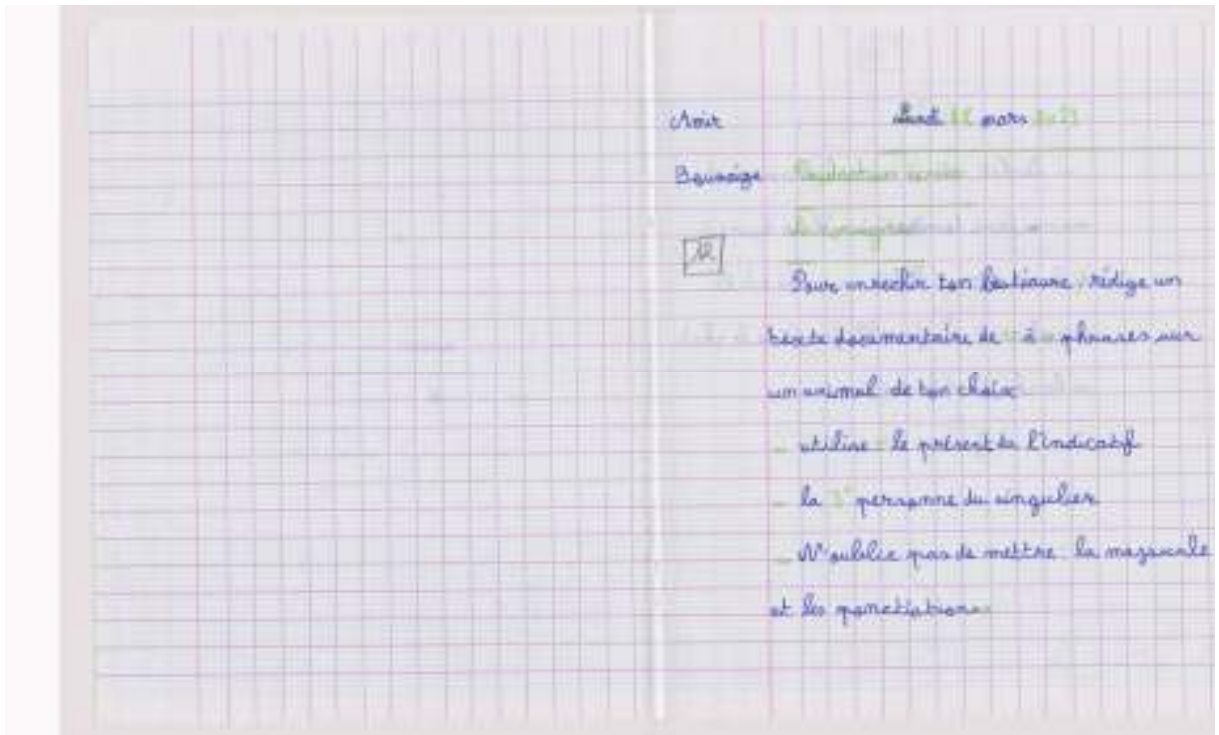 Amir Lundi mars
Production écrite
La consigne
Pour enrechir ton bestiaire, rédige un
texte documentaire de à phrases sur
un animal de ton choix
_ utilise : le présent de l'indicatif
_ la 3° personne du singulier
_ N'oublie pas de mettre la majuscule
et les ponctiations